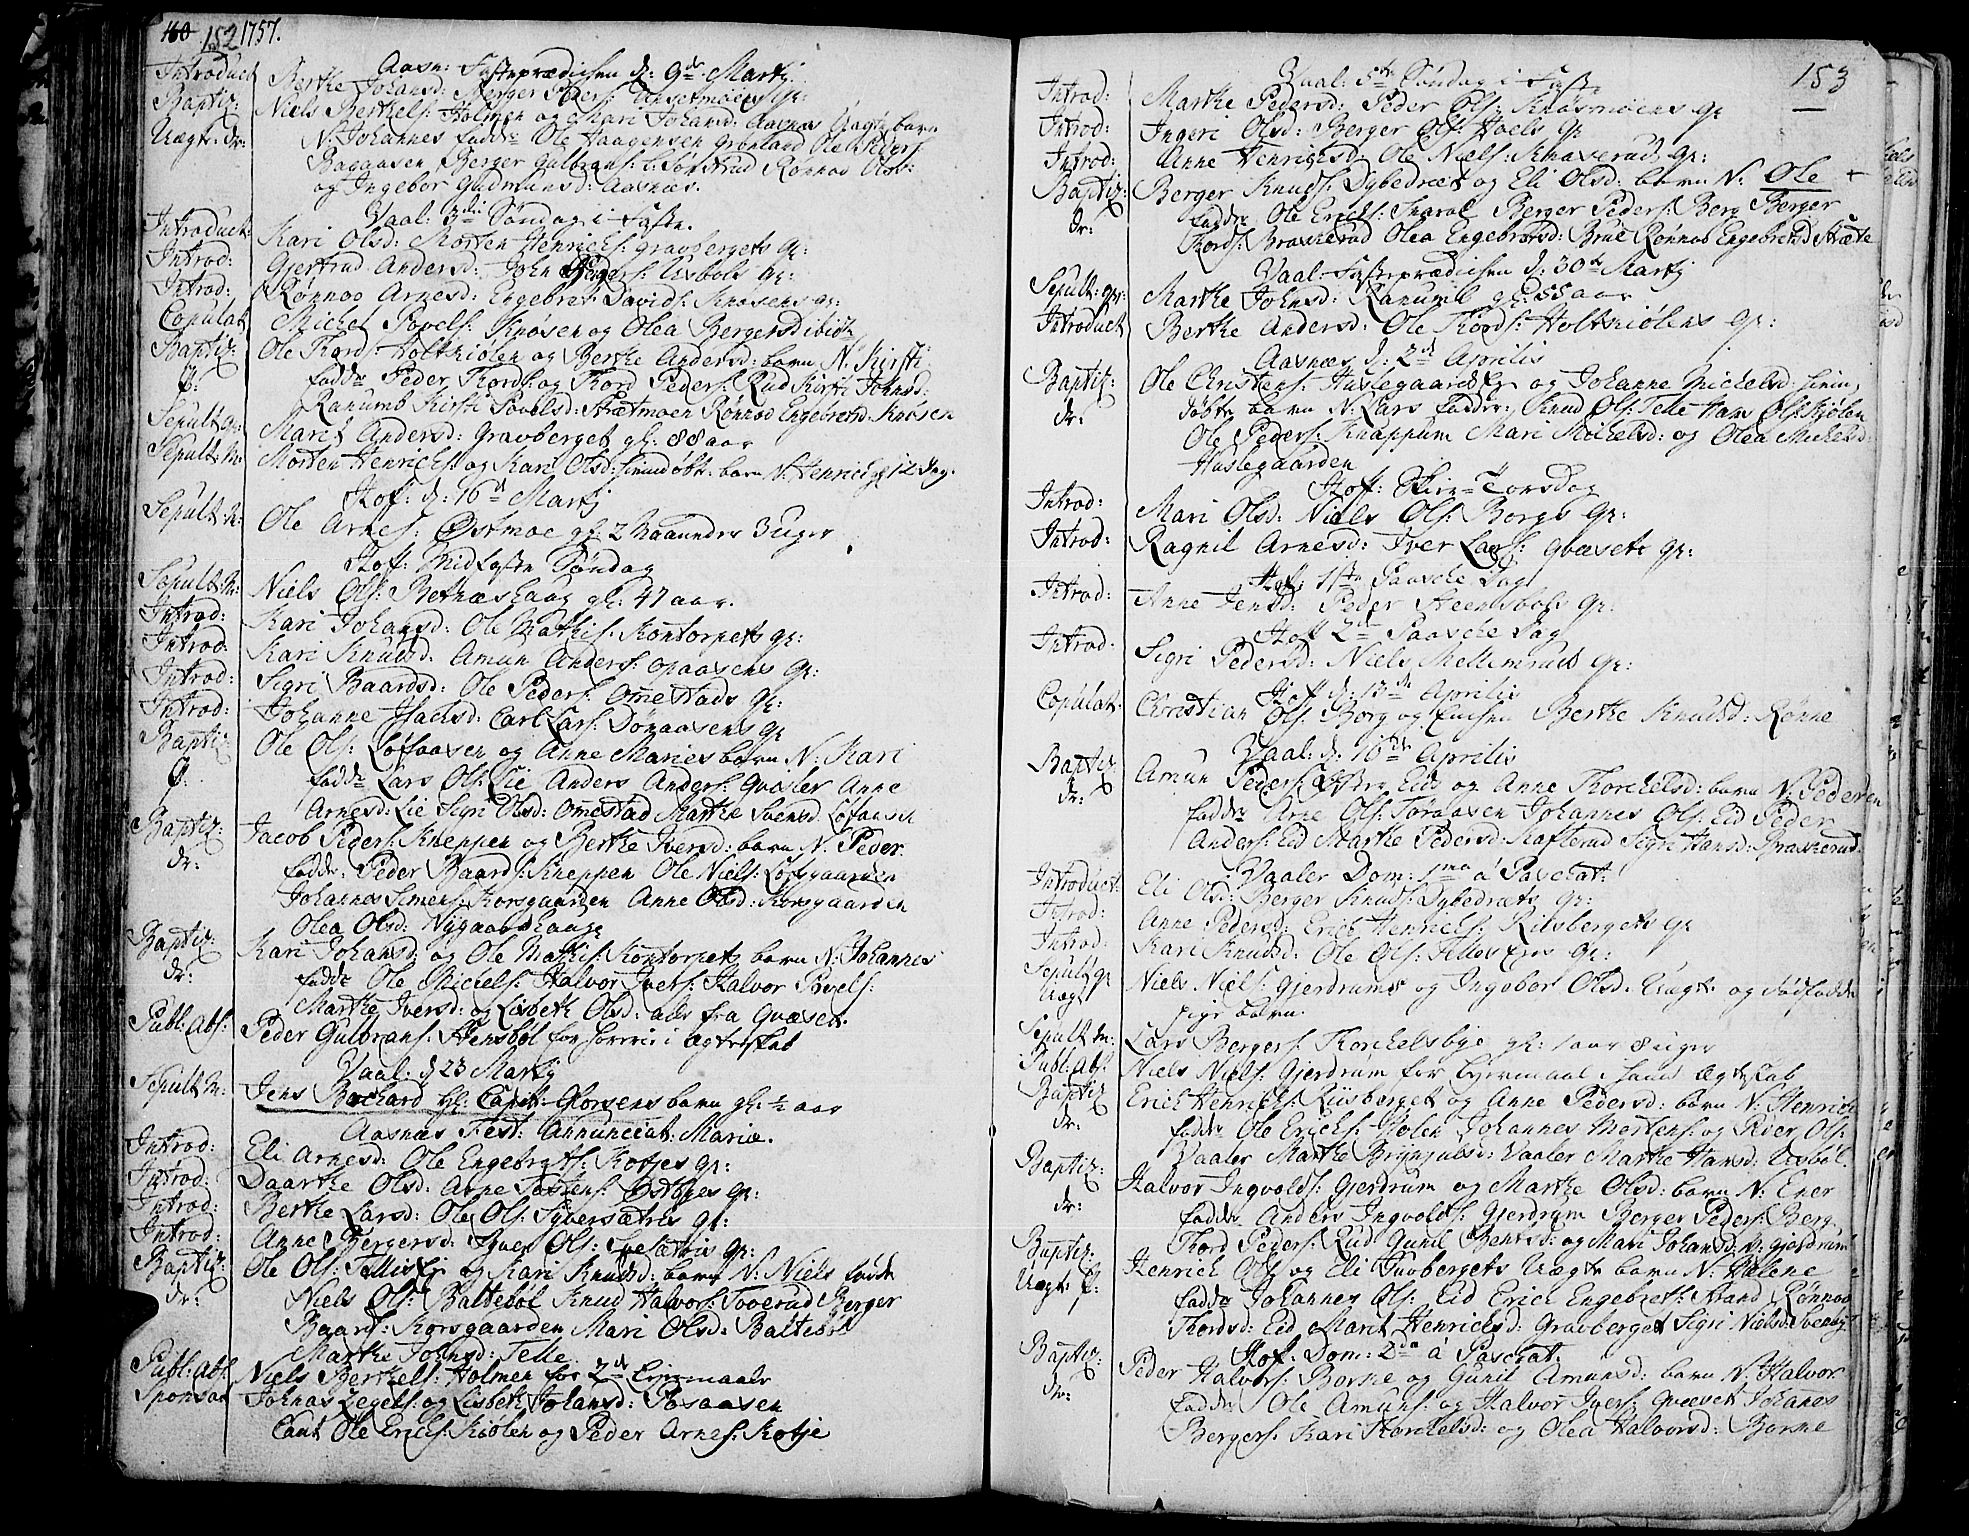 152 1757.
Aasn: Fasteprædichen d: 9de Martij
Introduct Berthe Johansd: Berger Peders: Gr:
Baptiz: Niels Berthels: Holmen og Mari Johansd: Aasnæs Uægte barn
Uægte dr: N. Johannes fadde Ole Haagensen Grønland Ole Peders:
Bagaasen Berger Gulbrans: Rønnod Olsd:
og Ingebor Gudmunsd: Aasnæs.
Vaal: 3die Søndag i Faste.
Introduct: Kari Olsd: Morten Henrichs: Gravbergets Gr:
Introd: Gjertrud Andersd: John Peders: Uisbøls Gr:
Introd: Rønnoo Arnesd: Engebret Davids: Knøsens Gr:
Copulat Michel Povels: Knøsen og Olea Bergersd ibid:
Baptiz: Ole Thords: Holtkiølen og Berthe Andersd: barn N. Kirsti
p: fadde Peder Thords: og Thord Peders: Rud Kirsti Johnsd:
Ranumb Kirsti Povelsd: Strætmoen Rønnod Engebretsd: Knøsen
Sepult qv: Marit Andersd: Gravberget gl: 88 aar
Sepult: M: Morten Henrichs: og Kari Olsd: hiemdøbt barn N. Henrich gl 12 dag.
Hof: d: 16de Martij
Sepult M: Ole Arnes: Østmoe gl: 2 Maander 3 uger
Hof: Midfaste Søndag
Sepult M: Niels Ols: Rotnæshaug gl: 47 aar.
Introd: Kari Johansd: Ole Mathis: Kontorpets gr:
Introd: Kari Knudsd: Amun Anders: Opaasens Gr:
Introd: Sigri Baardsd: Ole Peders: Omestads Gr:
Introd: Johanne Isachsd: Carl Lars: Dønaasens gr
Baptiz Ole Ols: Løfaasen og Anne Maries barn N. Kari
p: fadde Lars Ols: Lie Anders Anders: Gvæsler Anne
Arnesd: Lie Sigri Olsd: Omestad Marthe Svensd Løfaasen
Baptiz: Jacob Peders: Kneppen og Berthe Iversd: barn N. Peder
dr: fadde: Peder Baards: Kneppen Ole Niels: Løfsgaarden
Johannes Simens: Korsgaarden Anne Olsd: Korsgaarden
Olea Olsd: Nygaardshauge
Baptiz: Kari Johansd: og Ole Mathis: Kontorpets barn N: Johannes
dr: fadde Ole Michels: Halvor Ivers: Halvor Povels:
Marthe Iversd: og Lisbeth Olsd: alle fra Gvæsen.
Publ: Abs: Peder Gulbrans: Stensbøl for horerie i Ægteskab
Vaal: d 23 Martij
Sepult M: Jens Bochard Hr: Capit: Glorsens barn gl: ½ aar
Aasnæs Fest: Annunciat: Mariæ.
Introd: Eli Arnesd: Ole Engebrets: Kotjes gr:
Introd: Daarthe Olsd: Arne Tostens: Østbyes Gr:
Introd: Berthe Larsd: Ole Ols: Syversætres Gr:
Introd: Anne Bergersd: Iver Ols: Gr:
Baptiz: Ole Ols: Tellis Ej og Kari Knudsd: barn N: Niels fadde
dr: Niels Ols: Baltebøl Knud Halvors: Toverud Berger
Baards: Korsgaarden Mari Olsd: Baltebøl
Marthe Johnsd: Telle.
Publ: Abs: Niels Berthels: Holmen for 2de Leiermaale
Sponsal Johnas Zegels: og Lisbeth Johansd: Posaasen
Caut Ole Erichs: Kiølen og Peder Arnes: Kotje
153
Vaal: 5te Søndag i Faste
Introd: Marthe Pedersd: Peder Ols: Knøsmoens gr
Introd: Ingeri Olsd: Berger Ols: Hoels Gr
Introd: Anne Henrichsd: Ole Niels: Knaverud Gr:
Baptiz: Berger Knuds: Dybedræt og Eli Olsd: barn N: Ole +
dr: fadde Ole Erichs: Snarol Berger Peders: Berg Berger
Thords: Braskerud Olea Engebretsd: Brue Rønnod Engebretsd Stræte
Vaal: Fasteprædichen d: 30te Martij
Sepult: qv: Marthe Johnsd: Ranumb gl: 55 aar
Introduct Berthe Andersd: Ole Thords: Holtkiølens Gr:
Aasnæs d: 2de Aprilis
Baptiz: Ole Christens: Haslegaards Ej og Johanne Michelsd: hiem
dr: døbte barn N: Lars fadder: Knud Ols: Telle Hans Ols: Kjølen
Ole Peders: Knappum Mari Michelsd: og Olea Michelsd:
Haslegaarden
Hof: Skier-Torsdag
Introd: Mari Olsd: Niels Ols: Borgs Gr:
Introd: Ragnil Arnesd: Iver Lars: Gvæsets Gr:
Hof: 1ste Paasche Dag
Introd: Anne Jensd: Peder Steensbøls Gr:
Hof 2den Paasche Dag
Introd: Sigri Pedersd: Niels Mellemruds Gr:
Hof d: 13de Aprilis
Copulat. Christian Ols: Borg og Enchen Berthe Knudsd: Rønne
Vaal: d: 16de Aprilis
Baptiz: Amun Peders: Eid og Anne Thorchelsd: barn N: Pederen
dr: fadde Arne Ols: Toraasen Johannes Ols: Eid Peder
Anders: Eid Marthe Pedersd: Kafterud Sigri Hansd: Braskerud
Vaaler Dom: 1ma á Paschat:
Introduct: Eli Olsd: Berger Knuds: Dybedræts Gr:
Introd: Anne Pedersd: Erich Henrichs: Risbergets Gr
Introd: Kari Knudsd: Ole Ols: Telles Ejes Gr:
Sepult p Niels Niels: Gjerdrums og Ingebor Olsd: Uægte og dødfødde
Uægt pige barn.
Sepult M: Lars Bergers: Thorchelsbye gl: 1 aar 8 uger
Publ: Abs: Niels Niels: Gjerdrum for Leiermaal i hans Ægteskab
Baptiz Erich Henrichs: Riisberget og Anne Pedersd: barn N: Henrich
dr: fadde Ole Erichs: Kjølen Johannes Mortens: og Peder Ols:
Vaaler Marthe Brynjulsd: Vaaler Marthe Hansd: Uisbøl
Baptiz: Halvor Ingvolds: Gjerdrum og Marthe Olsd: barn N: Ener
dr: fadde Anders Ingvolds: Gjerdrum Berger Peders: Berg
Thord Peders: Rud Gunil Bentsd: og Mari Johansd: Gjerdrum
Baptiz. Henrich Ols og Eli Gravbergets Uægte barn N: Halene
Uægte p: fadde Johannes Ols: Eid Erich Engebrets: Strand Rønnod
Thordsd: Eid Marit Henrichsd: Gravberget Sigri Nielsd:
Hof: Dom: 2da á Paschat:
Baptiz: Peder Halvors: Borne og Gunil Amunsd: barn N: Halvor
dr: fadde Ole Amuns: og Halvor Ivers: Gvæset Johanes
Bergers: Kari Thorchelsd: og Olea Halvorsd: Borne